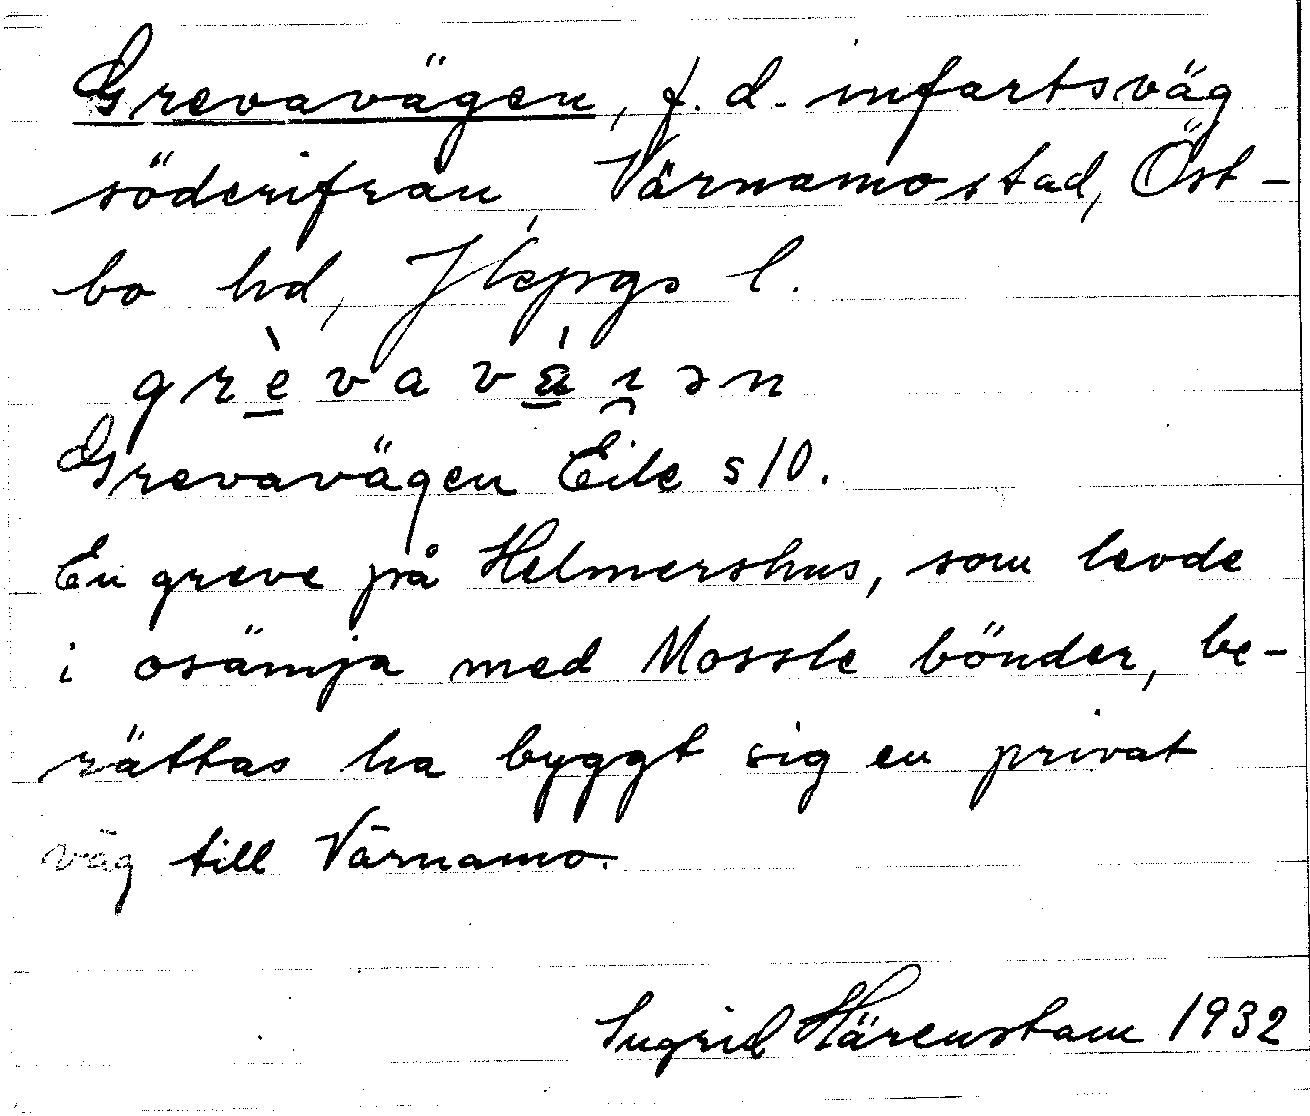 Grevavägen, f.d. infartsväg
söderifrån, Värnamo stad, Öst-
bo hd, Jkpgs l.
grèvavä̀ı̯ən
Grevavägen Eile s 10.
En greve på Helmershus, som levde
i osämja med Mossle bönder, be-
rättas ha byggt sig en privat
väg till Värnamo.
Ingrid Härenstam 1932